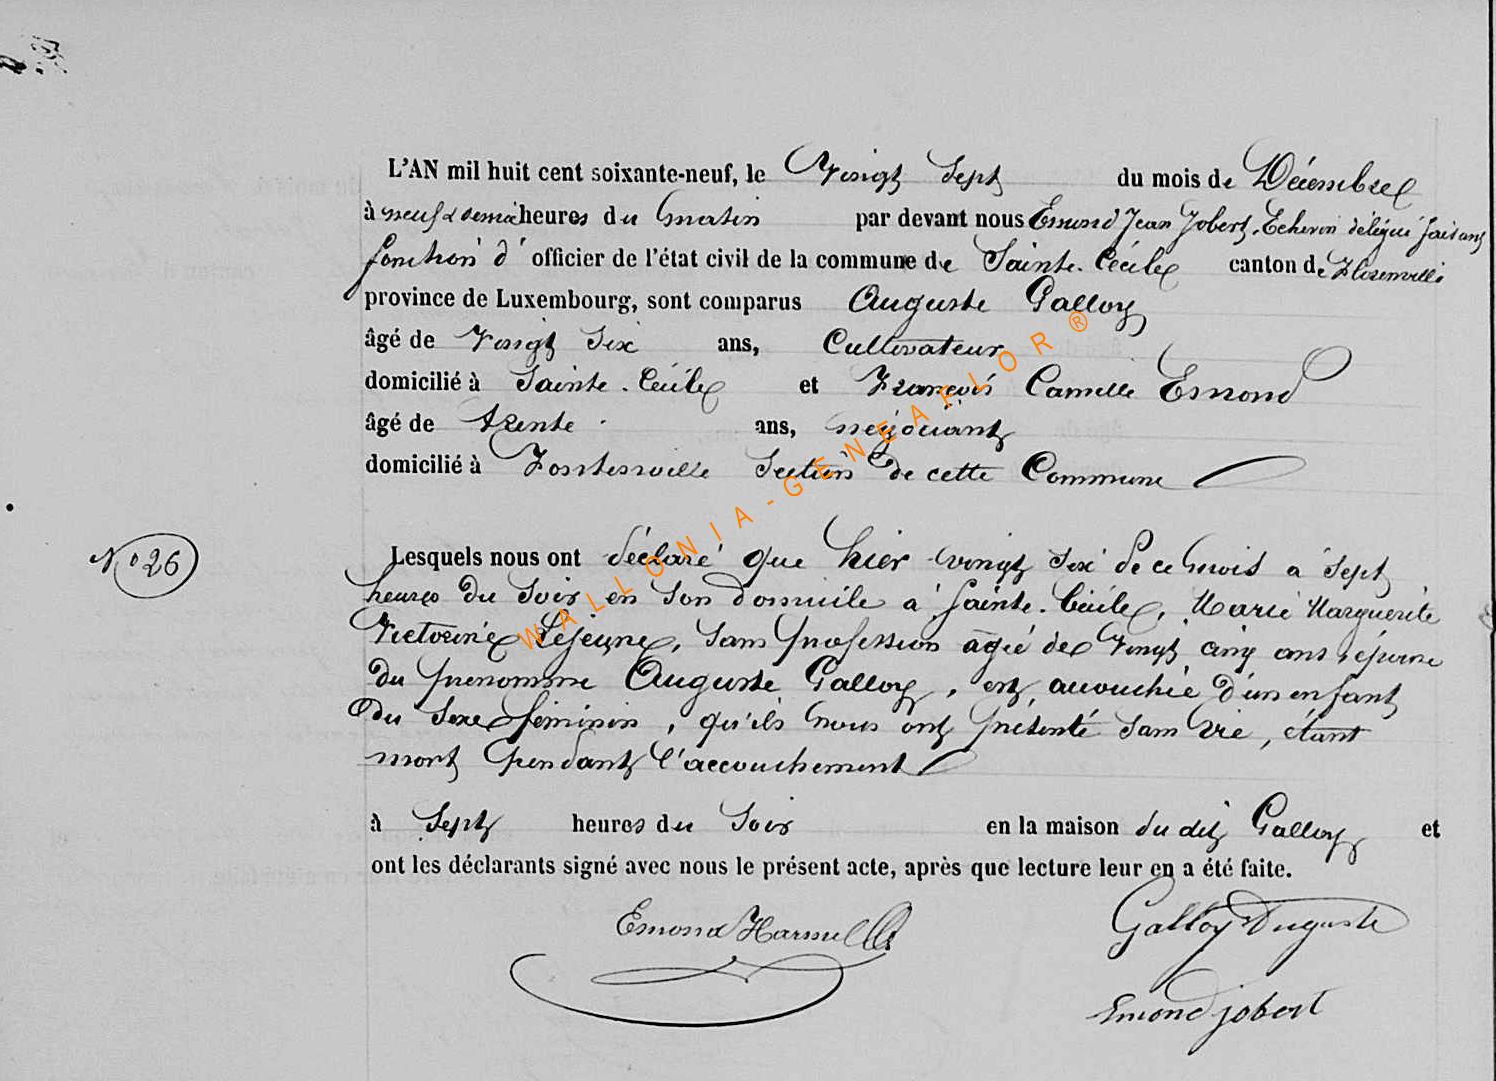 L'AN mil huit cent soixante-neuf, le Vingt Sept du mois de Décembre
à neuf & demie heures du matin par devant nous Emond Jean Jobert, Echevin délégué faisant
fonction d' officier de l'état civil de la commune de Sainte-Cécile canton de Florenville
province de Luxembourg, sont comparus Auguste Galloy
âgé de Vingt Six ans, Cultivateur
domicilié à Sainte-Cécile et François Camille Emond
âgé de trente ans, négociant
domicilié à Fontenoille Section de cette Commune
Lesquels nous ont déclaré que hier vingt six de ce mois à sept
N° 26
heures du soir en son domicile à Sainte-Cécile, Marie Marguerite
Victorine Lejeune, sans profession agée de Vingt cinq ans épouse
du prenommé Auguste Galloy, est accouchée d'un enfant
du sexe féminin, qu'ils nous ont présenté sans vie, étant
mort pendant l'accouchement
à Sept heures du Soir en la maison du dit Galloy et
ont les déclarants signé avec nous le présent acte, après que lecture leur en a été faite.
Emond Galloy Auguste
Emond jobert
WALLONIA-GENEAFLOR ®